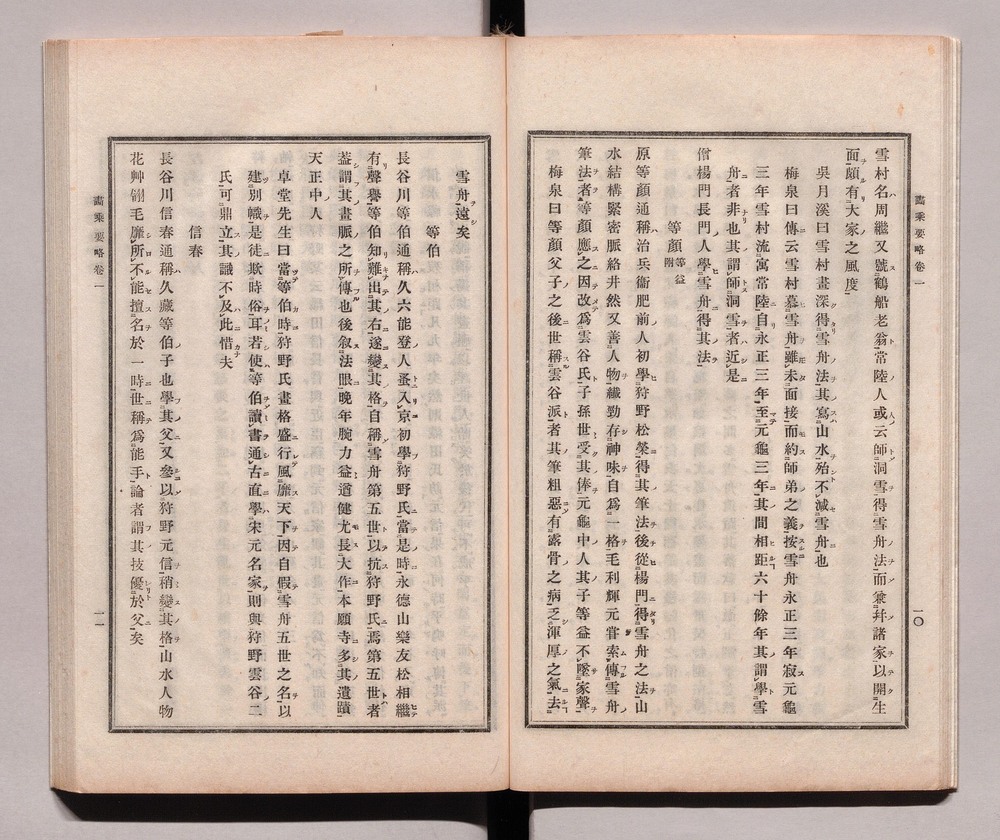 畵乘要略卷一
一〇
雪村名周繼又號鶴船老翁常陸人或云師洞雪得雪舟法而兼幷諸家以開生
面頗有大家之風度
吳月溪曰雪村畫深得雪舟法其寫山水殆不減雪舟也
梅泉曰傳云雪村慕雪舟雖未面接而約師弟之義按雪舟永正三年寂元龜
三年雪村流寓常陸自永正三年至元龜三年其間相距六十餘年其謂學雪
舟者非也其謂師洞雪者近是
僧楊門長門人學雪舟得其法
等顏 等益附
原等顏通稱治兵衞肥前人初學狩野松榮得其筆法後從楊門得雪舟之法山
水結構緊密脈絡井然又善人物纖勁存神味自爲一格毛利輝元甞索傳雪舟
筆法者等顏應之因改爲雲谷氏子孫世受其俸元龜中人其子等益不墜家聲
梅泉曰等顏父子之後世稱雲谷派者其筆粗惡有露骨之病乏渾厚之氣去
雪舟遠矣
等伯
長谷川等伯通稱久六能登人蚤入京初學狩野氏當是時永德山樂友松相繼
有聲譽等伯知難出其右遂變其格自稱雪舟第五世以抗狩野氏焉第五世者
蓋謂其畫脈之所傳也後叙法眼晩年腕力益遒健尤長大作本願寺多其遺蹟
天正中人
卓堂先生曰當等伯時狩野氏畫格盛行風靡天下因自假雪舟五世之名以
建別幟是徒欺時俗耳若使等伯讀書通古直學宋元名家則與狩野雲谷二
氏可鼎立其識不及此惜夫
信春
長谷川信春通稱久藏等伯子也學其父又參以狩野元信稍變其格山水人物
花艸翎毛靡所不能擅名於一時世稱爲能手論者謂其技優於父矣
畵乘要略卷一
一一